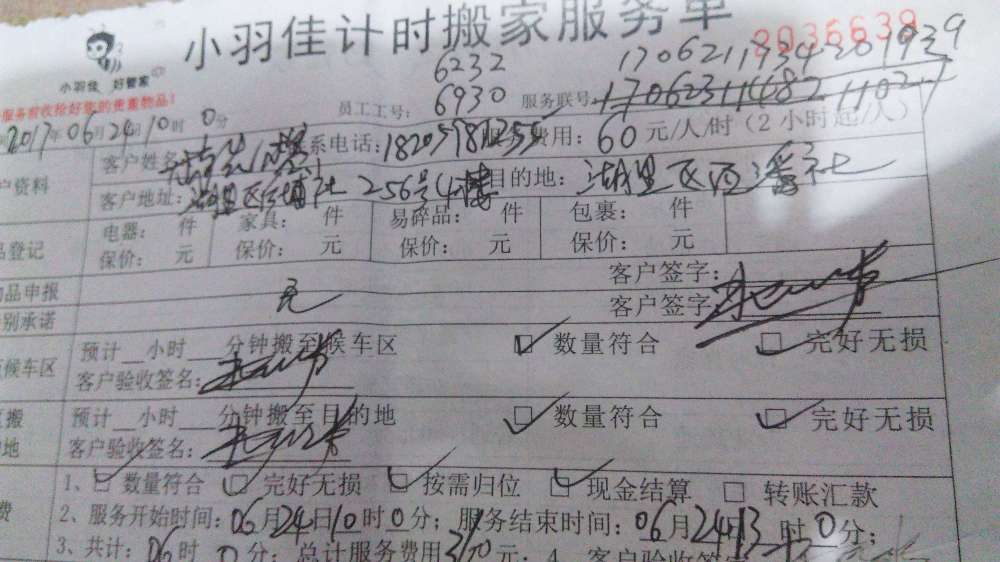 小羽佳计时搬家服务单
2036639
小羽佳 好管家
服务前收拾好您的贵重物品!
员工工号: 6232 6930 服务联号: 17062119342 01939
1706231148211027
2017年06月24日10时0分
客户姓名: 系电话: 服务费用: 60元/人/时(2小时起/人)
户资料
客户地址: 湖里区 社256号4楼 目的地: 湖里区西潘社
电器: 件 家具: 件 易碎品: 件 包裹: 件
品登记
保价: 元 保价: 元 保价: 元 保价: 元
物品申报 无 客户签字:
别承诺 客户签字:
预计__小时__分钟搬至候车区 数量符合 完好无损
候车区
客户验收签名:
搬 预计__小时__分钟搬至目的地 数量符合 完好无损
的地 客户验收签名:
1、 数量符合 完好无损 按需归位 现金结算 转账汇款
费 2、服务开始时间: 06月24日10时0分; 服务结束时间: 06月24日13时0分;
3、共计: 06时0分; 总计服务费用 元; 4、客户验收签字